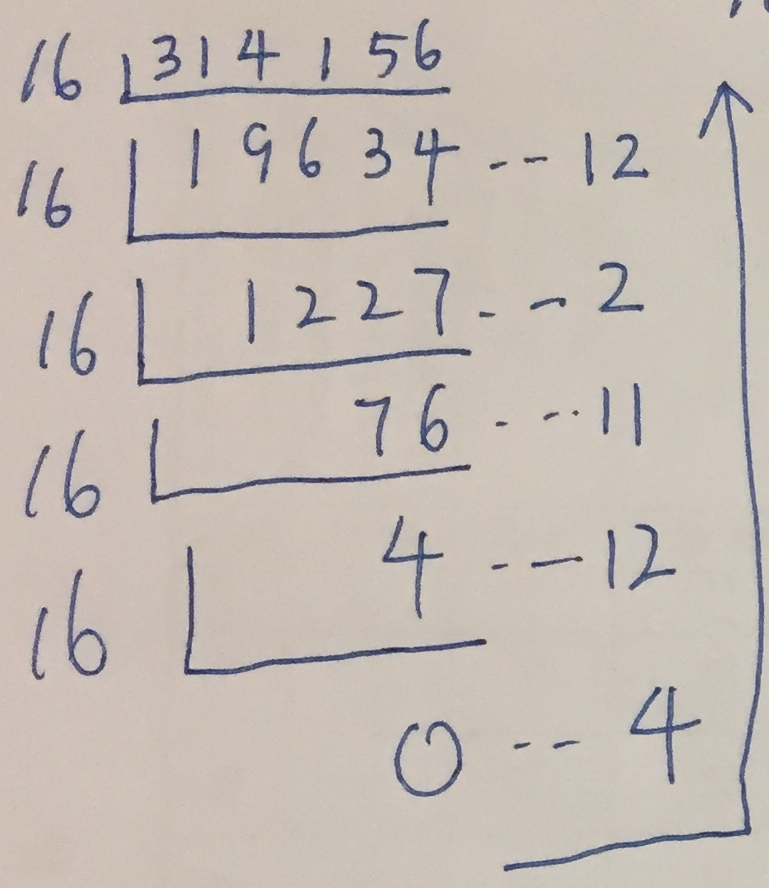 16 314156
16 19634 -- 12
16 1227 -- 2
16 76 --- 11
16 4 --- 12
0 -- 4